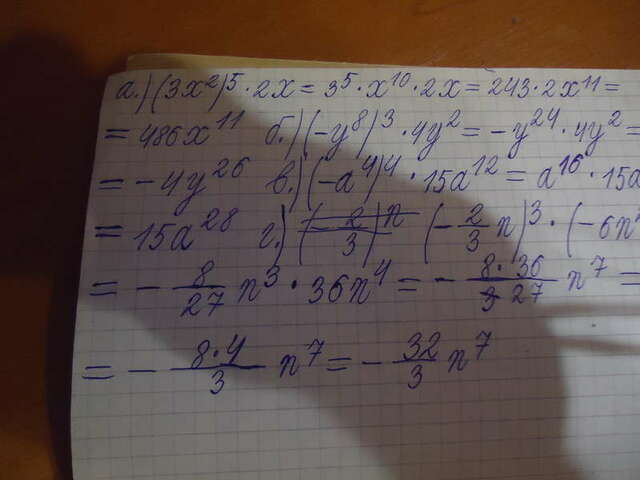 а.) (3x²)⁵ · 2x = 3⁵ · x¹⁰ · 2x = 243 · 2x¹¹ =
= 486x¹¹ б.) (-y⁸)³ · 4y² = -y²⁴ · 4y² =
= -4y²⁶ в.) (-a⁴)⁴ · 15a¹² = a¹⁶ · 15a
= 15a²⁸ г.) (-2/3)n (-2/3 n)³ · (-6n²
= -8/27 n³ · 36n⁴ = -8·36/27 n⁷ =
= -8·4/3 n⁷ = -32/3 n⁷